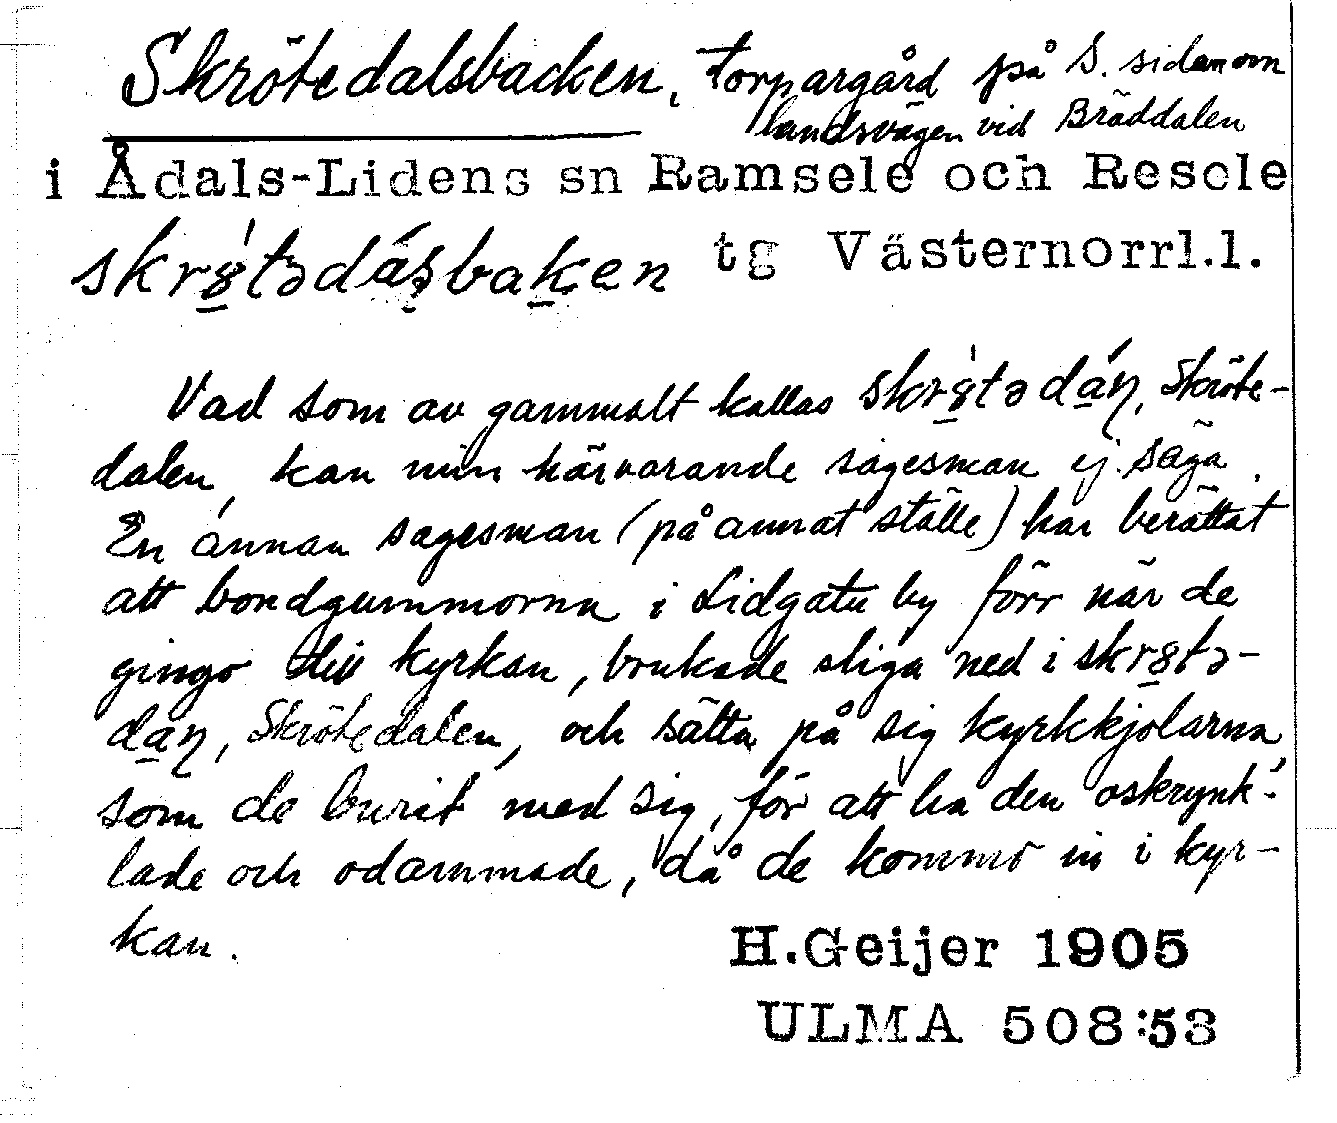 Skrötedalsbacken, torpargård på S. sidan om
landsvägen vid Bräddalen
i Ådals-Lidens sn Ramsele och Resele
skr8̱tədásbaḵen tg Västernorrl.l.
Vad som av gammalt kallas skr8̱tədáṉ, Skröte-
dalen, kan min härvarande sagesman ej säga.
En annan sagesman (på annat ställe) har berättat
att bondgummorna i Lidgatu by förr när de
gingo till kyrkan, brukade stiga ned i skr8̱tə-
daṉ, Skrötedalen, och sätta på sig kyrkkjolarna,
som de burit med sig, för att ha den oskrynk-
lade och odammade, då de kommo in i kyr-
kan.
H.Geijer 1905
ULMA 508:53